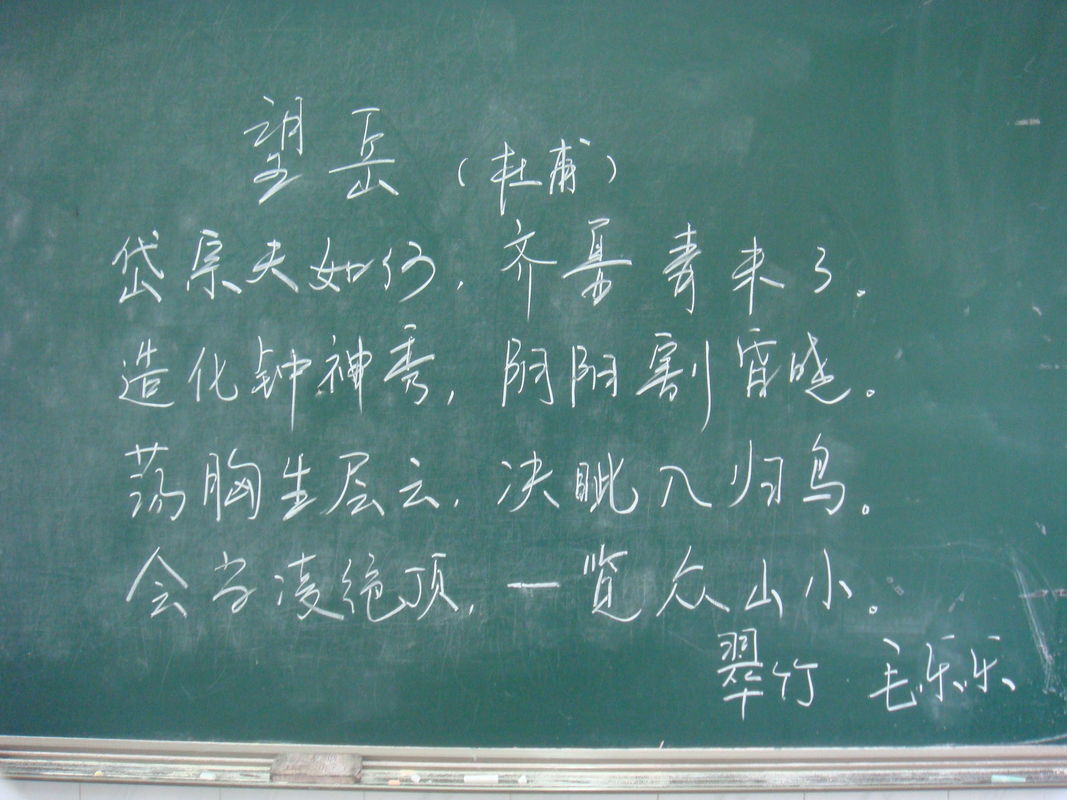 望岳（杜甫）
岱宗夫如何，齐鲁青未了。
造化钟神秀，阴阳割昏晓。
荡胸生层云，决眦入归鸟。
会当凌绝顶，一览众山小。
翠竹 毛乐乐